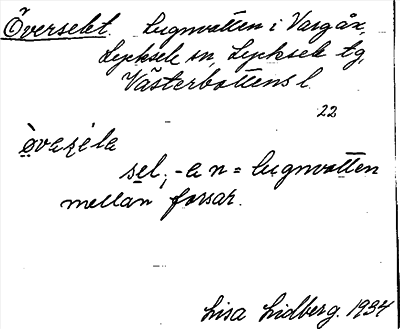 Överselet. Lugnvatten i Vargån,
Lycksele sn, Lycksele tg,
Västerbottens l.
22
òvaṣéla
sel, -a n = lugnvatten
mellan forsar.
Lisa Lidberg. 1934